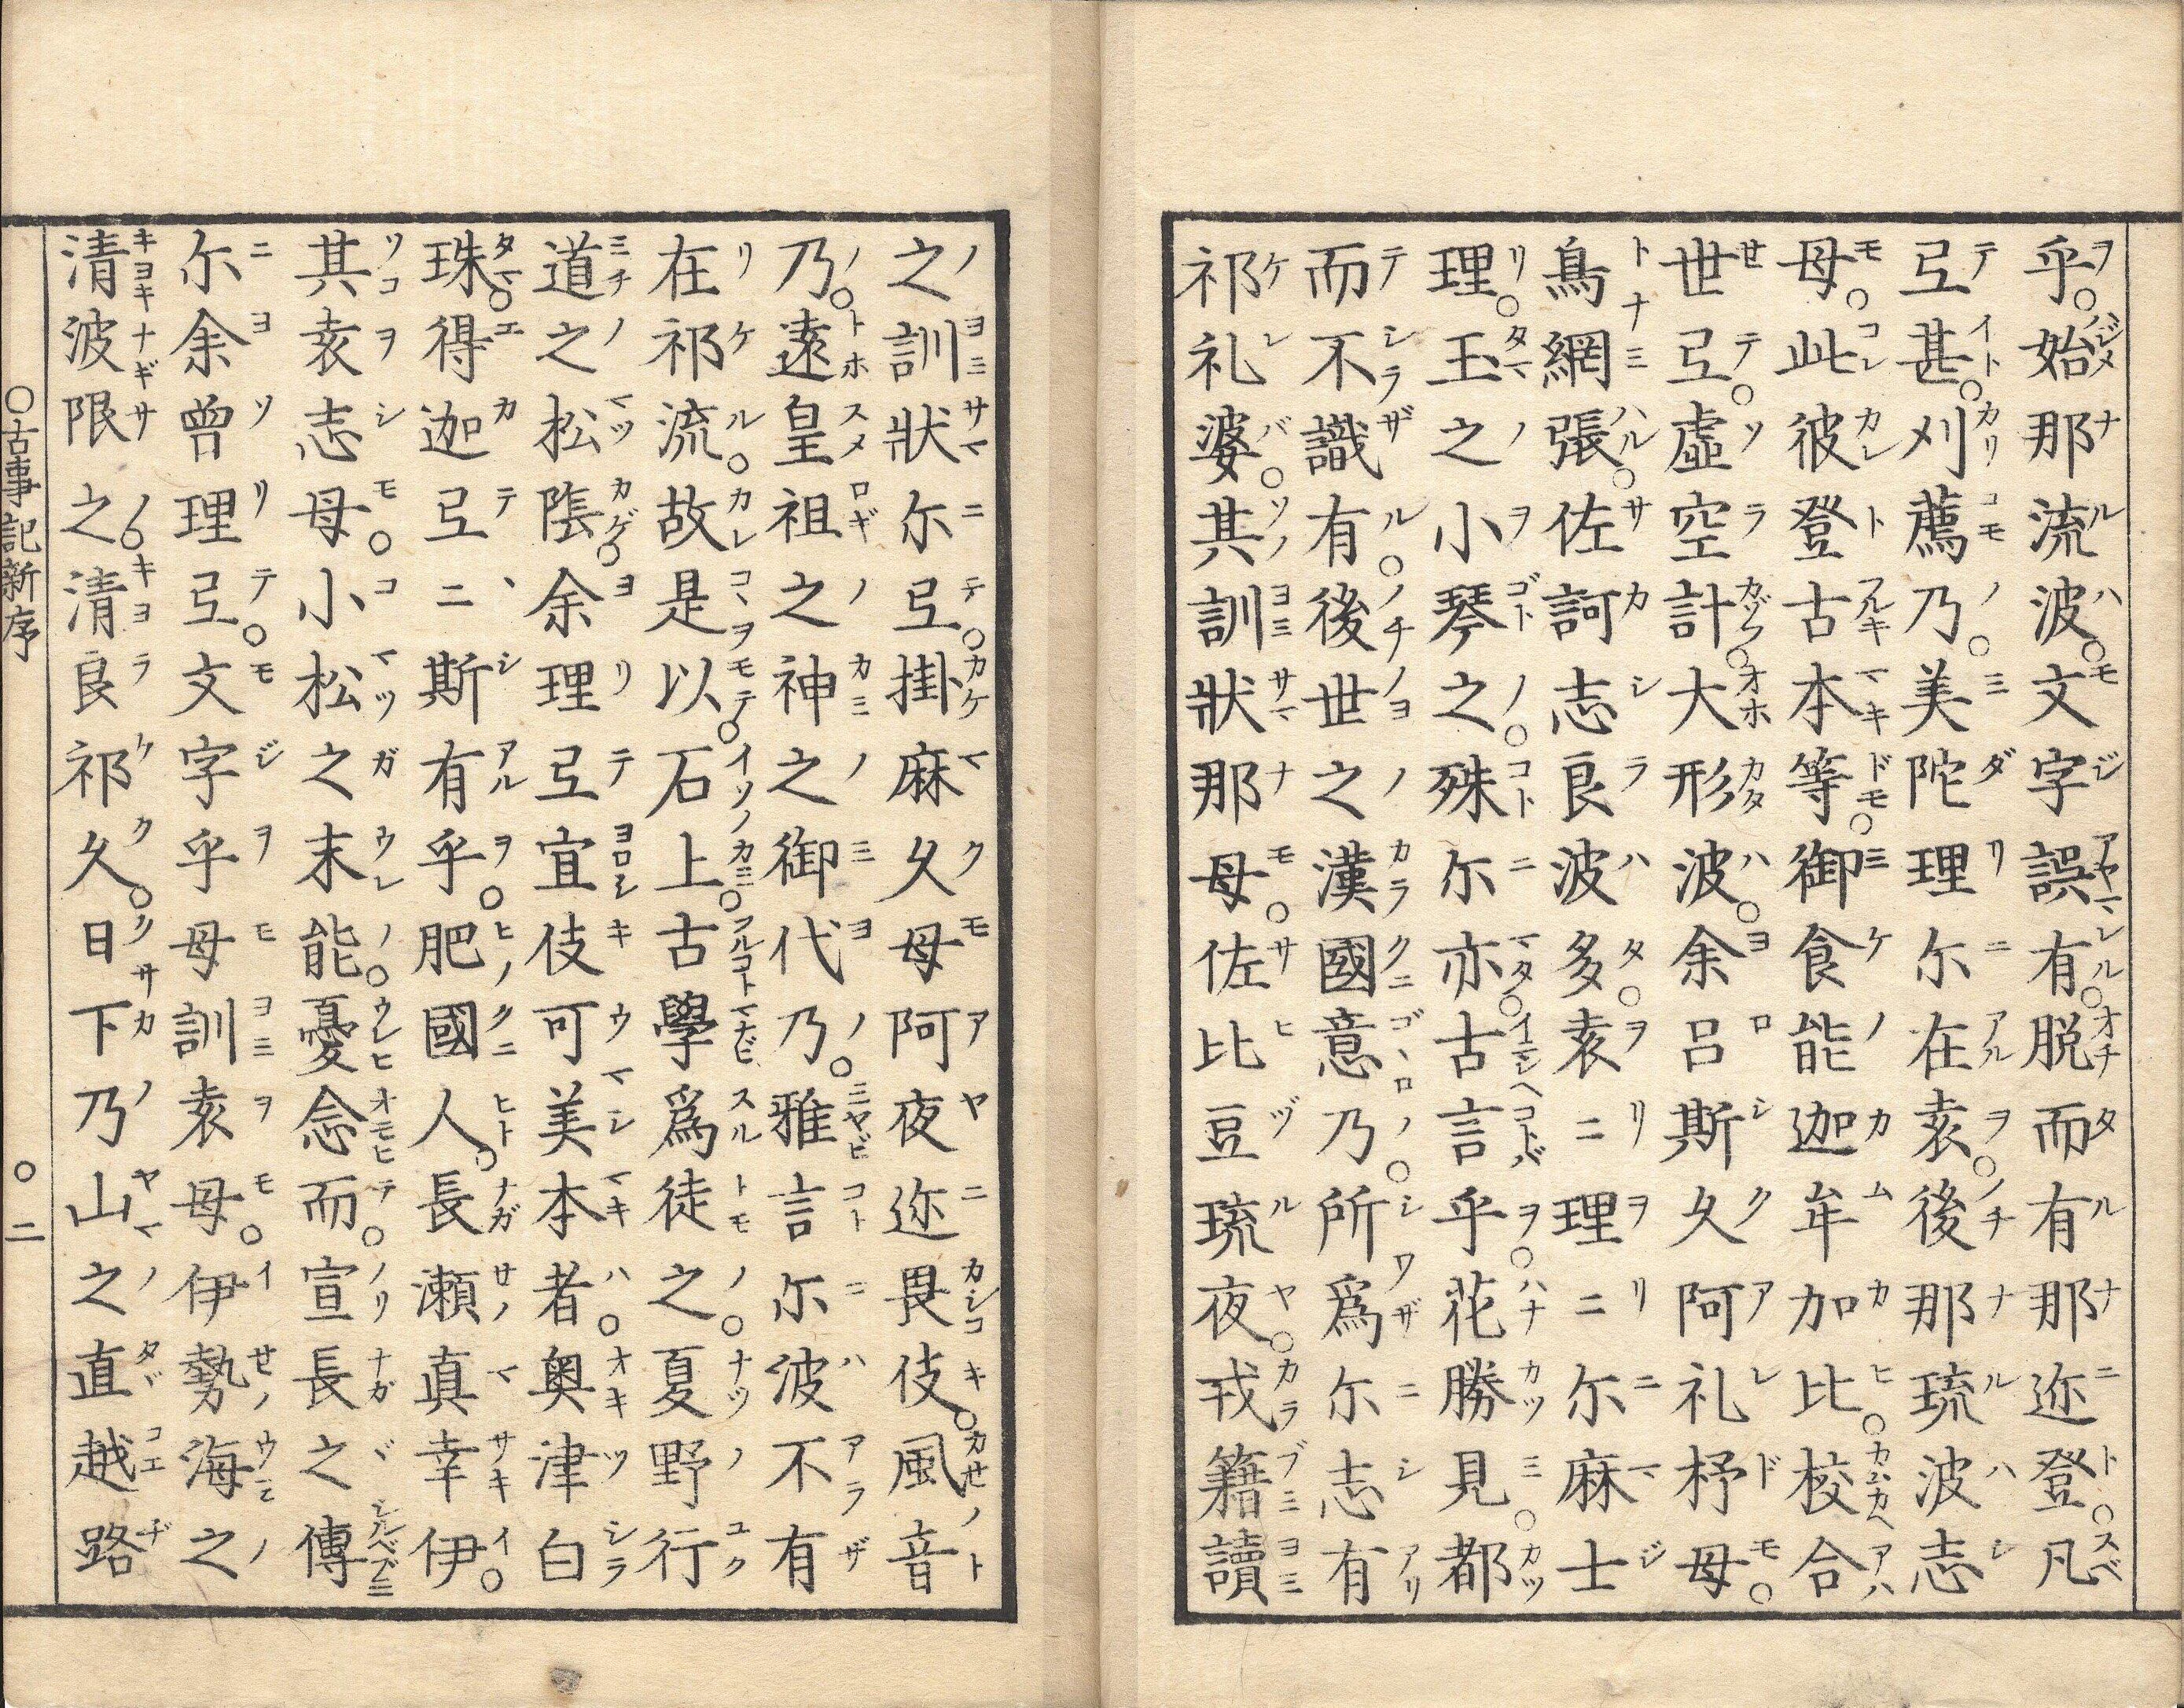 乎。始那流波。文字誤有。脱而有那迩登。凡
弖甚。刈薦乃。美陀理尓在袁。後那琉波志
母。此彼登古本等。御食能迦牟加比。校合
世弖。虚空計。大形波。余呂斯久阿礼杼母。
鳥網張。佐訶志良波多。袁二理二尓麻士
理。玉之小琴之。殊尓亦。古言乎。花勝見。都
而不識有。後世之漢國意乃。所爲尓志有
祁礼婆。其訓狀那母。佐比豆琉夜。戎籍讀
之訓狀尓弖。掛麻久母阿夜迩畏伎。風音
乃。遠皇祖之神之御代乃。雅言尓波不有
在祁流。故是以。石上。古學爲徒之。夏野行
道之松蔭。余理弖宜伎可美本者。奥津白
珠。得迦弖二斯有乎。肥國人。長瀬真幸伊。
其袁志母。小松之末能。憂念而。宣長之傳
尓余曽理弖。文字乎母訓袁母。伊勢海之
清波限之。清良祁久。日下乃山之直越路
○古事記新序 ○二